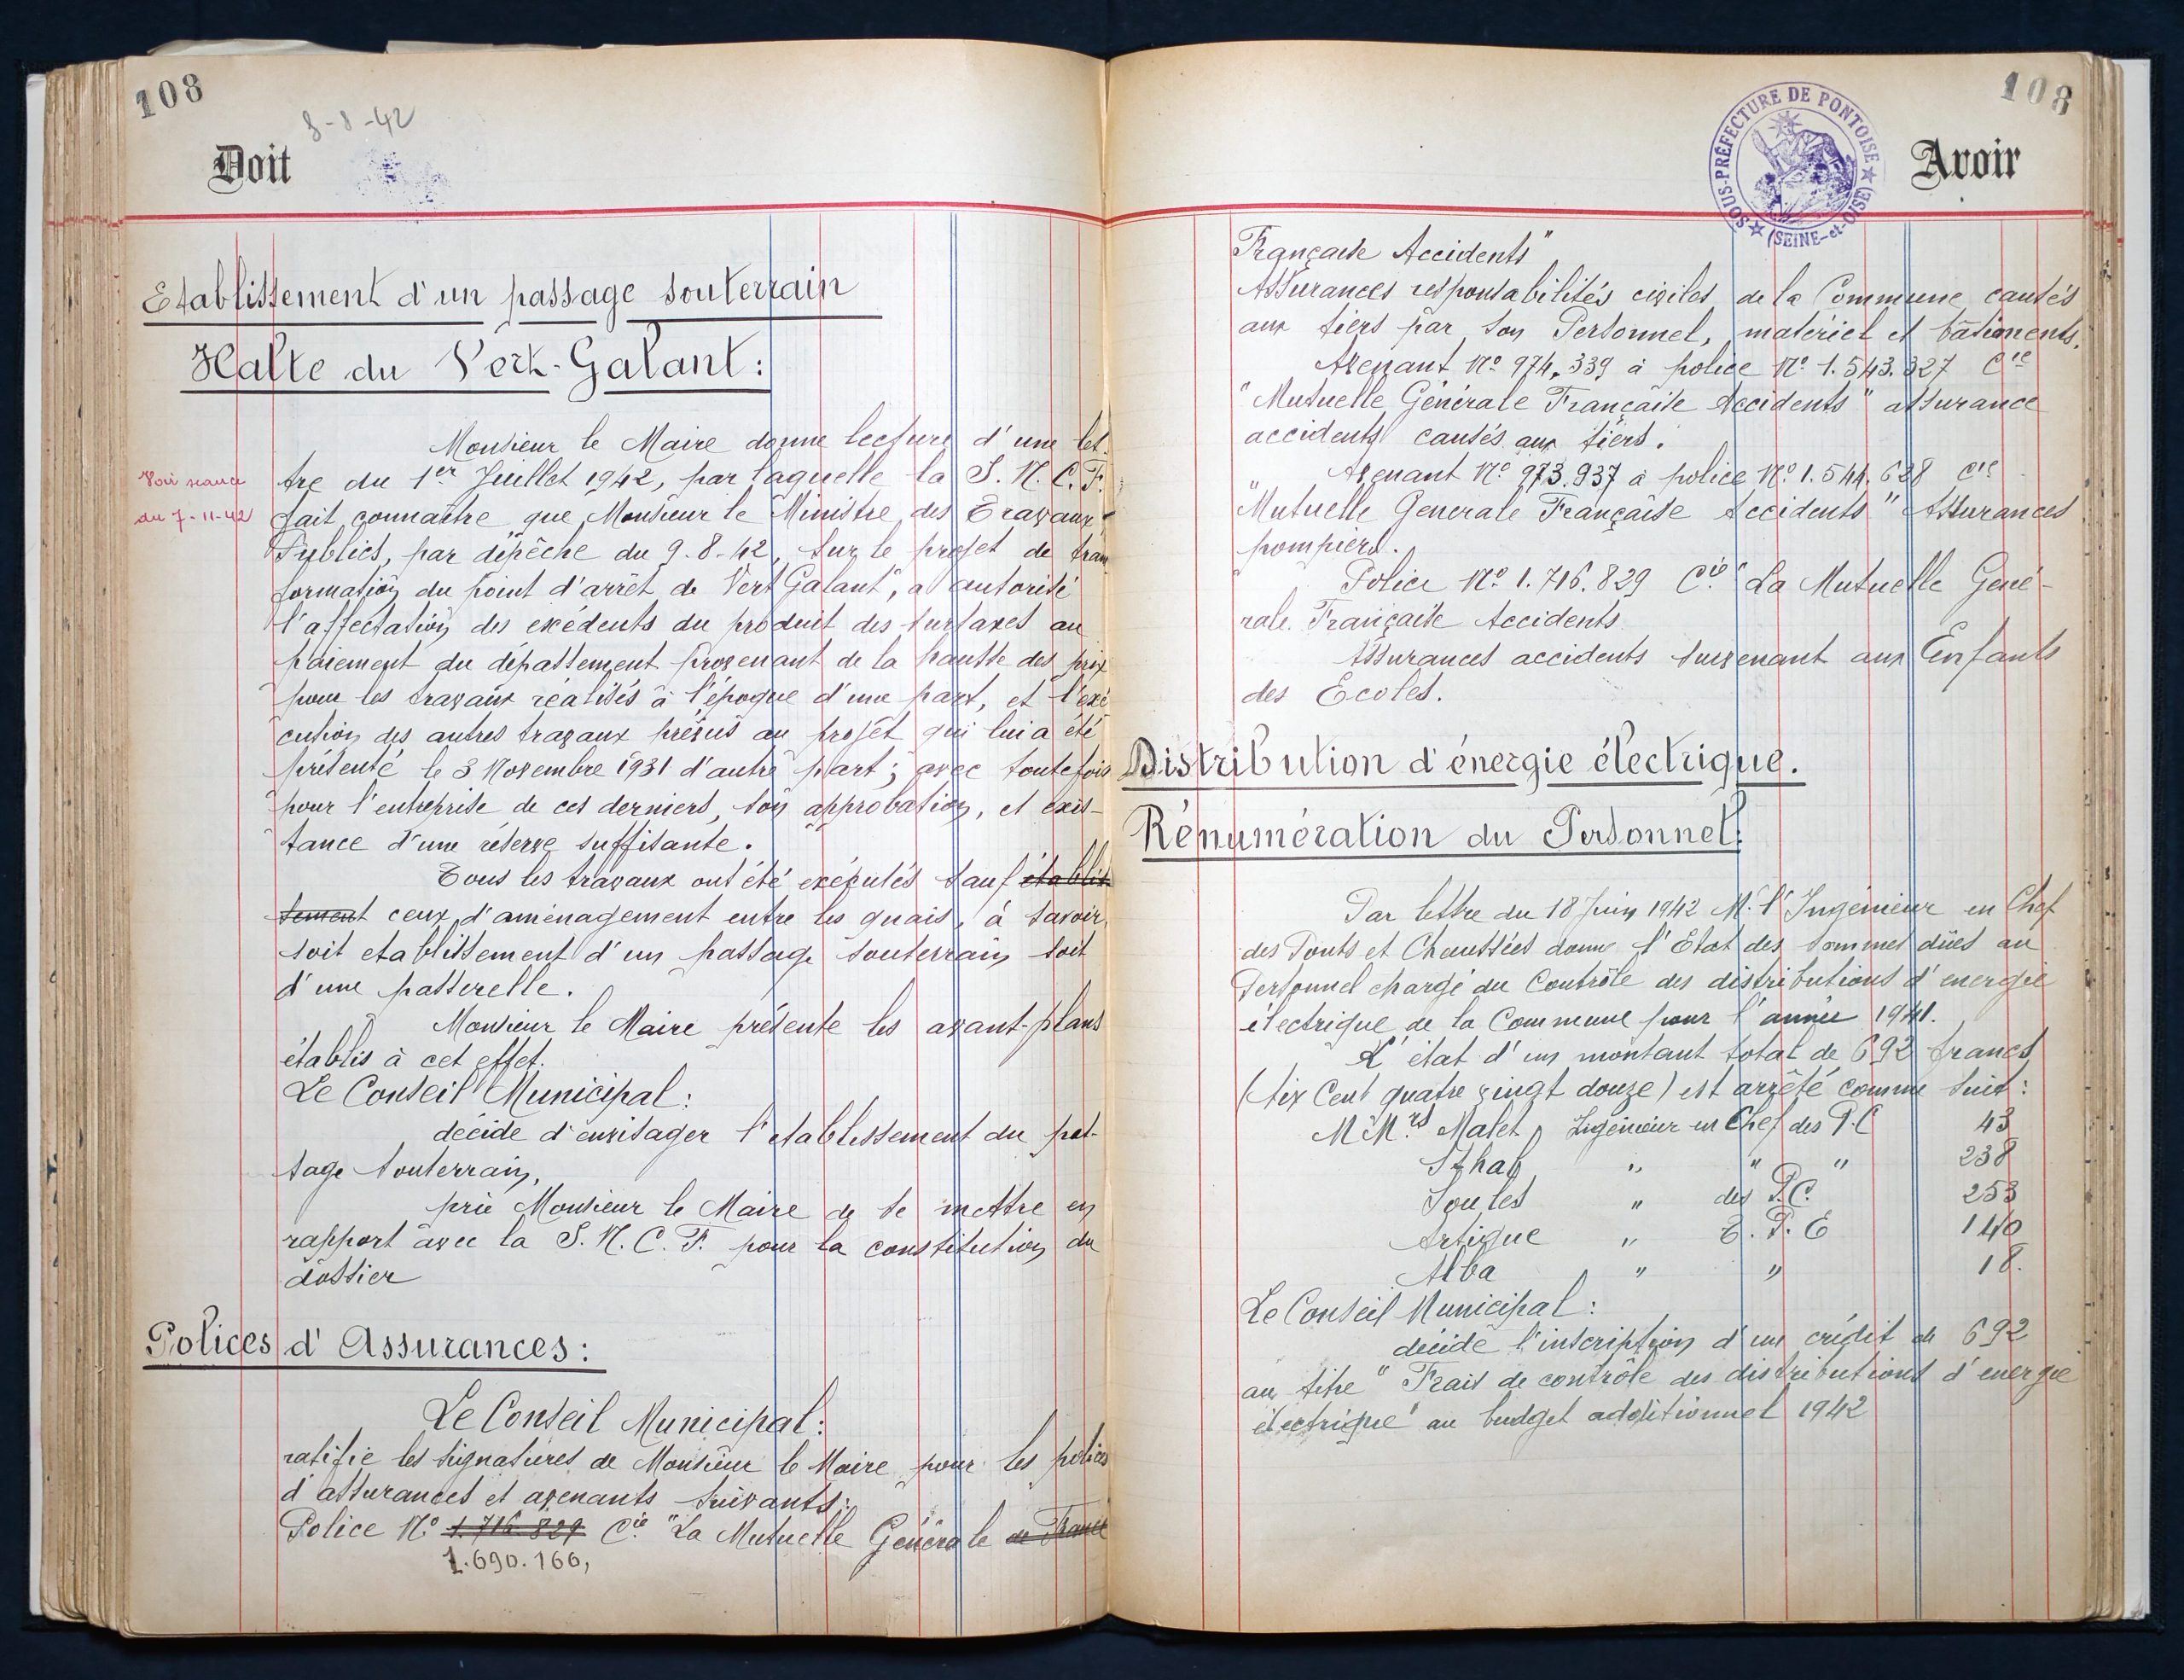 108
8-8-42
Doit
Etablissement d'un passage souterrain
Halte du Vert-Galant:
Monsieur le Maire donne lecture d'une let-
Voir séance
tre du 1er Juillet 1942, par laquelle la S.N.C.F.
du 7-11-42
fait connaître que Monsieur le Ministre des Travaux
Publics, par dépêche du 9-8-42, sur le projet de trans
formation du point d'arrêt de Vert Galant", a autorisé
l'affectation des excédents du produit des surtaxes au
paiement du dépassement provenant de la hausse des prix
pour les travaux réalisés à l'époque d'une part, et l'exé
cution des autres travaux prévus au projet qui lui a été
présenté le 3 Novembre 1931 d'autre part; avec toutefois
pour l'entreprise de ces derniers, son approbation, et exis-
tance d'une réserve suffisante.
Tous les travaux ont été exécutés sauf établis
sement ceux d'aménagement entre les quais, à savoir,
soit etablissement d'un passage souterrain soit
d'une passerelle.
Monsieur le Maire présente les avant-plans
établis à cet effet.
Le Conseil Municipal:
décide d'envisager l'etablissement du pas-
sage souterrain,
prie Monsieur le Maire de se mettre en
rapport avec la S.N.C.F. pour la constitution du
dossier
Polices d'Assurances:
Le Conseil Municipal:
ratifie les signatures de Monsieur le Maire pour les polices
d'assurances et avenants suivants:
Police N° 1.716.829 Cie "La Mutuelle Générale de France
1.690.166,
108
SOUS-PRÉFECTURE DE PONTOISE
(SEINE-et-OISE)
Avoir
Française Accidents"
Assurances responsabilités civiles de la Commune causés
aux tiers par son Personnel, matériel et bâtiments.
Avenant N° 974.339 à police N° 1.543.327 Cie
"Mutuelle Générale Française Accidents" assurance
accidents causés aux tiers.
Avenant N° 973.937 à police N° 1.544.628 Cie
"Mutuelle Generale Française Accidents" Assurances
pompiers.
Police N° 1.716.829 Cie "La Mutuelle Géné-
rale Française Accidents
Assurances accidents survenant aux Enfants
des Ecoles.
Distribution d'énergie électrique.
Rénumération du Personnel:
Par lettre du 18 Juin 1942 Mr l'Ingénieur en Chef
des Ponts et Chaussées donne l'Etat des sommes dûes au
Personnel chargé du Contrôle des distributions d'energie
électrique de la Commune pour l'année 1941.
L'état d'un montant total de 692 francs
(six Cent quatre vingt douze) est arrêté comme suit:
M Mrs Malet, Ingénieur en Chef des P.C 43
" " " 238
Soules " des P.C. 253
Artigue " T.P.E 140
Alba " " 18.
Le Conseil Municipal:
décide l'inscription d'un crédit de 692
au titre "Frais de contrôle des distributions d'energie
électrique" au budget additionnel 1942